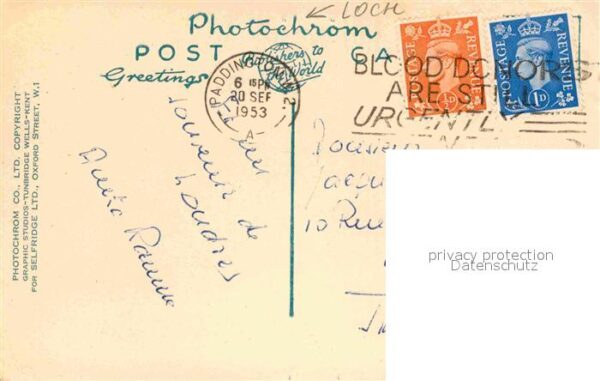 LOCH
Photochrom
POST CA
Publishers to
the World
Greetings
PADDINGTON W.2
6 15PM
20 SEP
1953
A
BLOOD DONORS
ARE STILL
URGENTLY
POSTAGE REVENUE
½D
POSTAGE REVENUE
1D
souvenir de
Londres
10 Rue
privacy protection
Datenschutz
PHOTOCHROM CO., LTD. COPYRIGHT
GRAPHIC STUDIOS-TUNBRIDGE WELLS-KENT
FOR SELFRIDGE LTD., OXFORD STREET, W.1